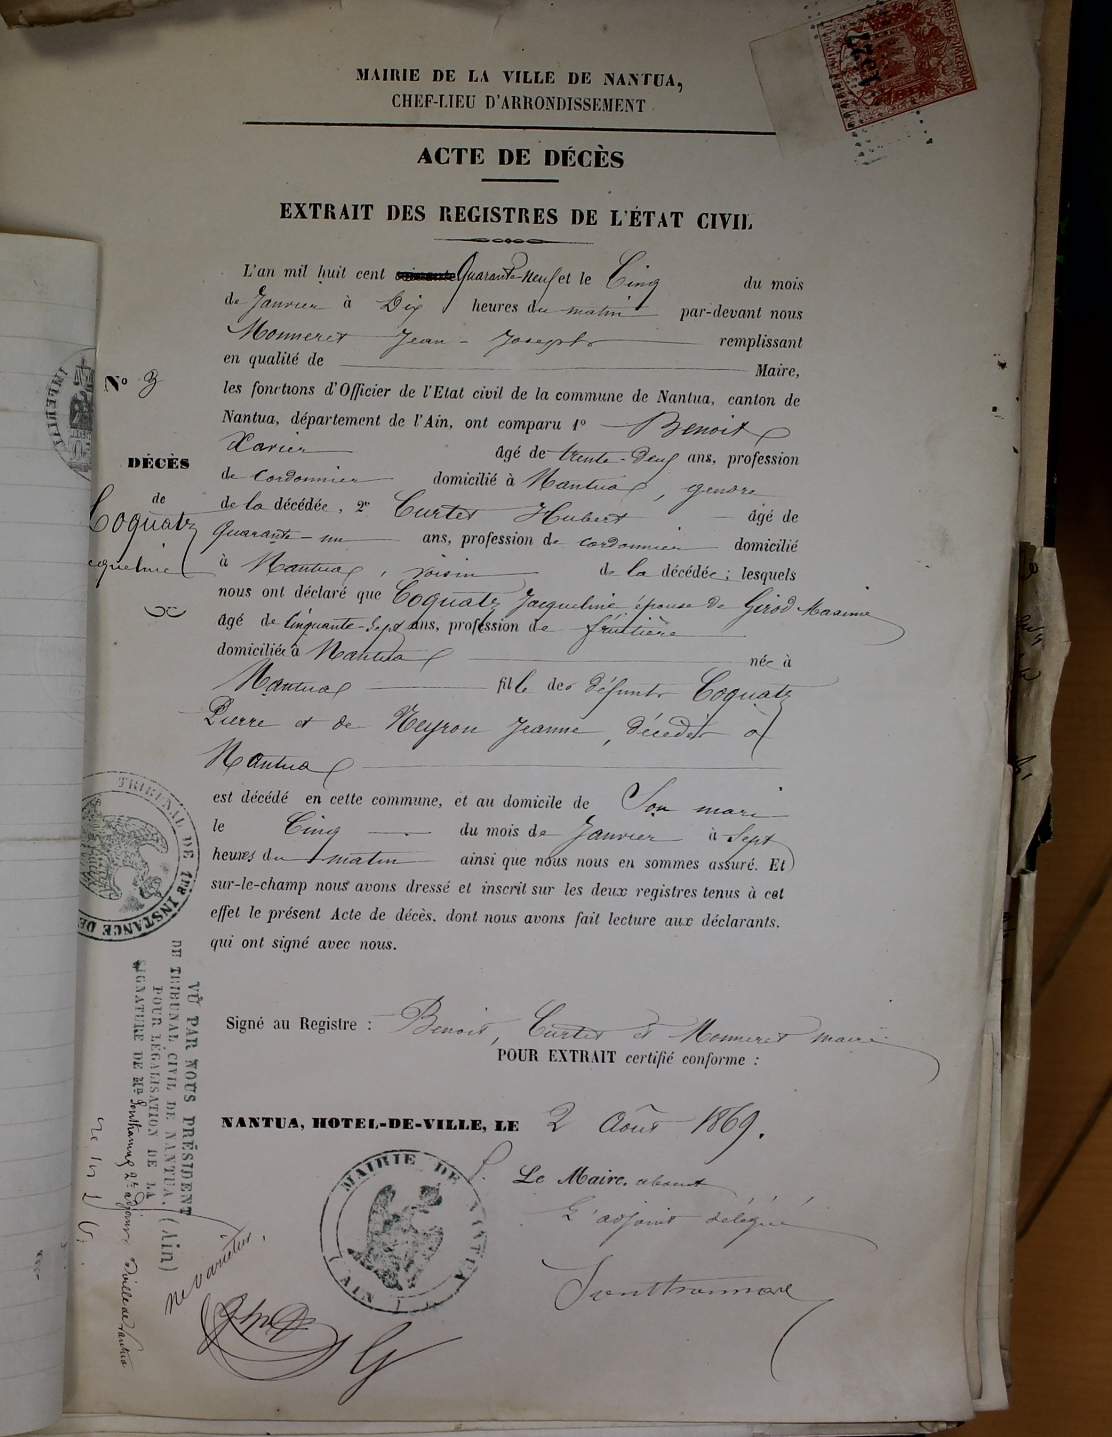 MAIRIE DE LA VILLE DE NANTUA,
CHEF-LIEU D'ARRONDISSEMENT
ACTE DE DÉCÈS
EXTRAIT DES REGISTRES DE L'ÉTAT CIVIL
L'an mil huit cent Quarante-neuf et le Cinq du mois
de Janvier à Dix heures du matin par-devant nous
Monneret Jean-Joseph remplissant
en qualité de Maire,
les fonctions d'Officier de l'Etat civil de la commune de Nantua, canton de
Nantua, département de l'Ain, ont comparu 1º Benoit
Xavier âgé de trente-deux ans, profession
de cordonnier domicilié à Nantua, gendre
de la décédée, 2º Curtet Hubert âgé de
quarante-un ans, profession de cordonnier domicilié
à Nantua, voisin de la décédée; lesquels
nous ont déclaré que Coquatz Jacqueline, épouse de Girod Maxime
âgé de Cinquante-Sept ans, profession de fruitière
domiciliée à Nantua née à
Nantua fille des défunts Coquatz
Pierre et de Neyron Jeanne, décédés à
Nantua
est décédé en cette commune, et au domicile de Son mari
le Cinq du mois de Janvier à Sept
heures du matin ainsi que nous nous en sommes assuré. Et
sur-le-champ nous avons dressé et inscrit sur les deux registres tenus à cet
effet le présent Acte de décès, dont nous avons fait lecture aux déclarants,
qui ont signé avec nous.
Signé au Registre : Benoit, Curtet et Monneret maire
POUR EXTRAIT certifié conforme :
NANTUA, HOTEL-DE-VILLE, LE 2 Août 1869.
P. Le Maire, absent,
L'adjoint délégué
Nº 3
DÉCÈS
de
Coquatz
cqueline
TRIBUNAL DE 1re INSTANCE DE
VU PAR NOUS PRÉSIDENT
DU TRIBUNAL CIVIL DE NANTUA. (Ain)
POUR LÉGALISATION DE LA
SIGNATURE DE Mr
ne varietur.
MAIRIE DE NANTUA
AIN